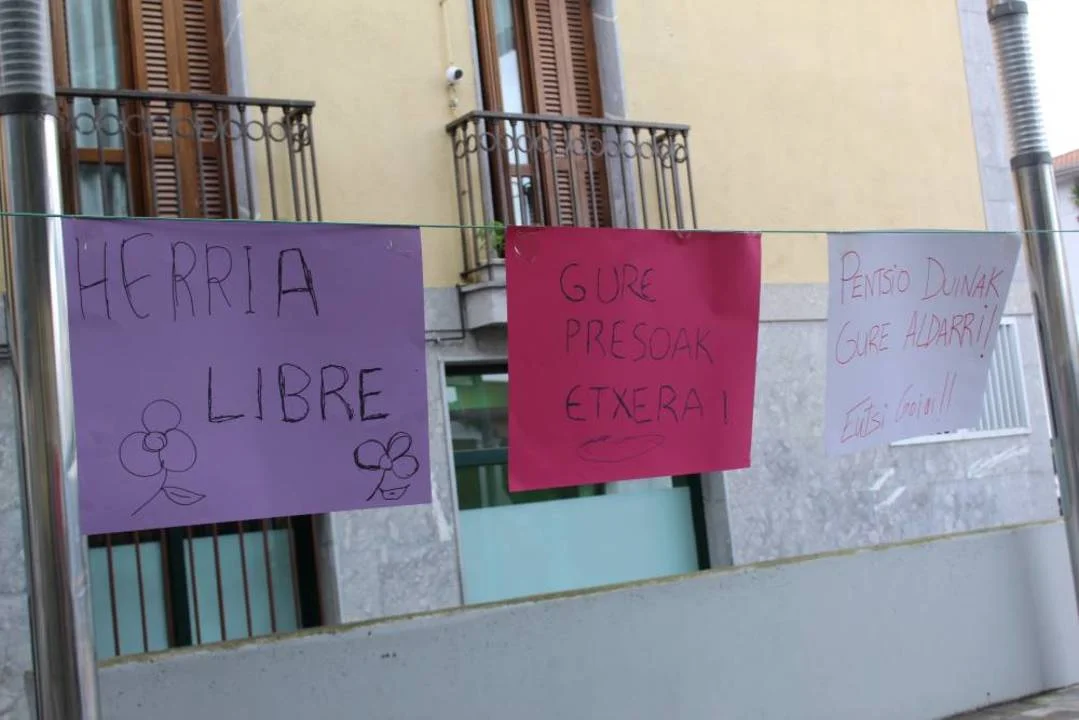 HERRIA
LIBRE
GURE
PRESOAK
ETXERA!
PENTSIO DUINAK
GURE ALDARRI!
Eutsi Goiai!!